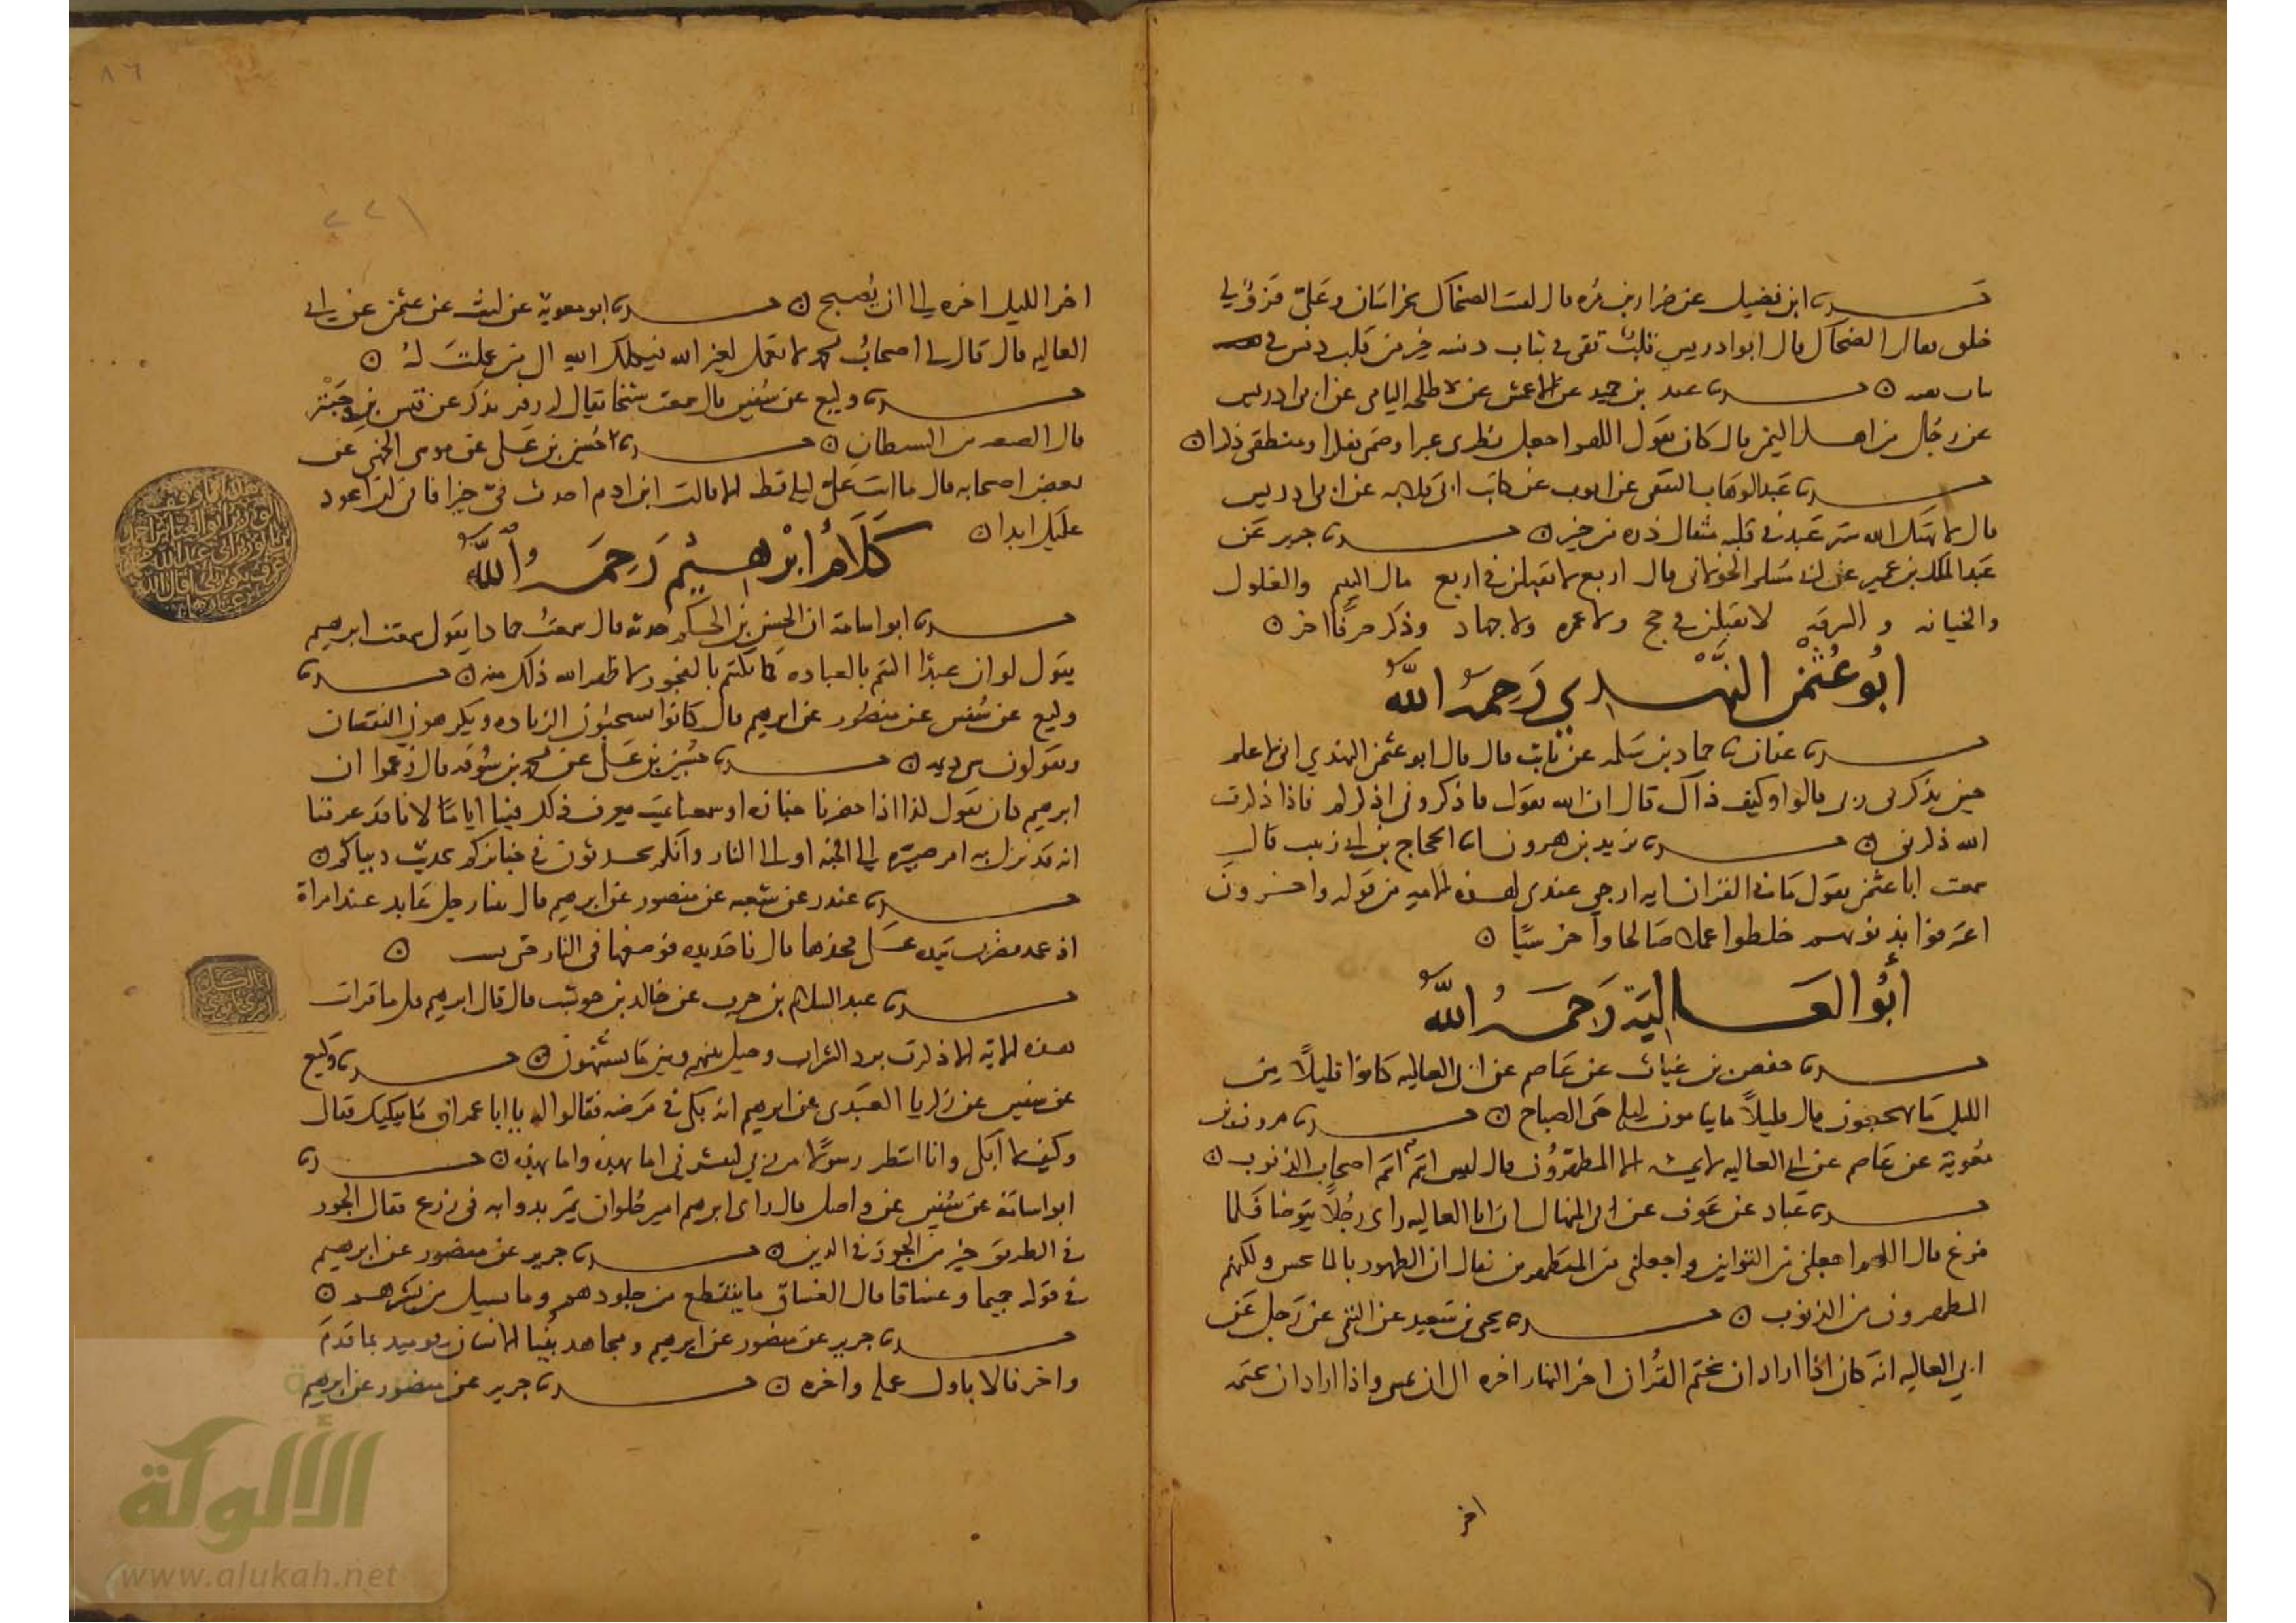 حدثنا ابن فضيل عن ضرار بن مره قال لقيت الضحاك بخراسان وعلي فرو لي
خلق فقال الضحاك قال ابو ادريس قلب نقي في ثياب دنسه خير من قلب دنس في
ثياب نقيه ن حدثنا عبده بن حميد عن الاعمش عن طلحه اليامي عن ابي ادريس
عن رجل من اهل اليمن قال كان يقول اللهم اجعل نظري عبرا وصمتي تفكرا ومنطقي ذكرا ن
حدثنا عبد الوهاب الثقفي عن ايوب عن كتاب ابي قلابه عن ابي ادريس
قال لا يهتك الله ستر عبد في قلبه مثقال ذره من خير ن حدثنا جرير عن
عبد الملك بن عمير عن ابي مسلم الخولاني قال اربع لا يقبلن في اربع مال اليتيم والغلول
والخيانه والسرقه لا يقبلن في حج ولا عمره ولا جهاد وذكر حرفا اخر ن
ابو عثمن النهدي رحمه الله
حدثنا عفان ثنا حماد بن سلمه عن ثابت قال قال ابو عثمن النهدي اني لاعلم
حين يذكرني ربي قالوا وكيف ذاك قال ان الله يقول فاذكروني اذكركم فاذا ذكرت
الله ذكرني ن حدثنا يزيد بن هرون انا الحجاج بن ابي زينب قال
سمعت ابا عثمن يقول ما في القران ايه ارجى عندي لهذه الامه من قوله واخرون
اعترفوا بذنوبهم خلطوا عملا صالحا واخر سيئا ن
أبو العالية رحمه الله
حدثنا حفص بن غياث عن عاصم عن ابي العاليه كانوا قليلا من
الليل ما يهجعون قال قليلا ما ينامون ليله حتى الصباح ن حدثنا مروان بن
معوية عن عاصم عن ابي العاليه لا يمسه الا المطهرون قال ليس انتم انتم اصحاب الذنوب ن
حدثنا عباد عن عوف عن ابي المنهال ان ابا العاليه راى رجلا يتوضا فلما
فرغ قال اللهم اجعلني من التوابين واجعلني من المتطهرين فقال ان الطهور بالما حسن ولكنهم
المطهرون من الذنوب ن حدثنا يحيى بن سعيد عن التيمي عن رجل عن
ابي العاليه انه كان اذا اراد ان يختم القران اخر النهار اخره الى ان يمسي واذا اراد ان يختمه
اخر
٨٦
٢٢١
اخر الليل اخره الى ان يصبح ن حدثنا ابو معوية عن ليث عن عثمن عن ابي
العاليه قال قال لي اصحاب محمد لا تعمل لغير الله فيكلك الله الى من عملت له ن
حدثنا وكيع عن سفين قال سمعت شيخا يقال له يذكر عن قيس بن حبتر
قال من الشيطان ن حدثنا حسين بن علي عن موسى الجهني عن
بعض اصحابه قال ما اتت علي ليله قط الا قالت ابن ادم احدث في خيرا فاني لن اعود
عليك ابدا ن
كلام ابرهيم رحمه الله
حدثنا ابو اسامة ان الحسن بن الحكم حدثه قال سمعت حمادا يقول سمعت ابرهيم
يقول لو ان عبدا اكتتم بالعباده كما يكتتم بالفجور لاظهر الله ذلك منه ن حدثنا
وكيع عن سفين عن منصور عن ابرهيم قال كانوا يستحبون الزياده ويكرهون النقصان
ويقولون شي ديمه ن حدثنا حسين بن علي عن محمد بن سوقه قال زعموا ان
ابرهيم كان يقول كنا اذا حضرنا جنازه او سمعنا بميت يعرف ذلك فينا اياما لانا قد عرفنا
انه قد نزل به امر صيره الى الجنه او الى النار وانكم تحدثون في جنائزكم بحديث دنياكم ن
حدثنا غندر عن شعبه عن منصور عن ابرهيم قال بينا رجل عابد عند امراة
اذ عمد فضرب بيده على فخذها قال فاخذ يده فوضعها في النار حتى ن
حدثنا عبد السلام بن حرب عن خالد بن حوشب قال قال ابرهيم قل ما قرات
هذه الاية الا ذكرت برد الشراب وحيل بينهم وبين ما يشتهون ن حدثنا وكيع
عن سفين عن زكريا العبدي عن ابرهيم انه بكى في مرضه فقالوا له يا ابا عمران ما يبكيك فقال
وكيف لا ابكي وانا انتظر رسولا من ربي يبشرني اما بهذه واما بهذه ن حدثنا
ابو اسامة عن سفين عن واصل قال راى ابرهيم امير حلوان يمر بدوابه في زرع فقال الجور
في الطريق خير من الجور في الدين ن حدثنا جرير عن منصور عن ابرهيم
في قوله حميما وغساقا قال الغساق ما يتقطع من جلودهم وما يسيل من بشرهم ن
حدثنا جرير عن منصور عن ابرهيم ومجاهد ينبا الانسان يوميذ بما قدم
واخر قالا باول عمله واخره ن حدثنا جرير عن منصور عن ابرهيم
الألوكة
www.alukah.net